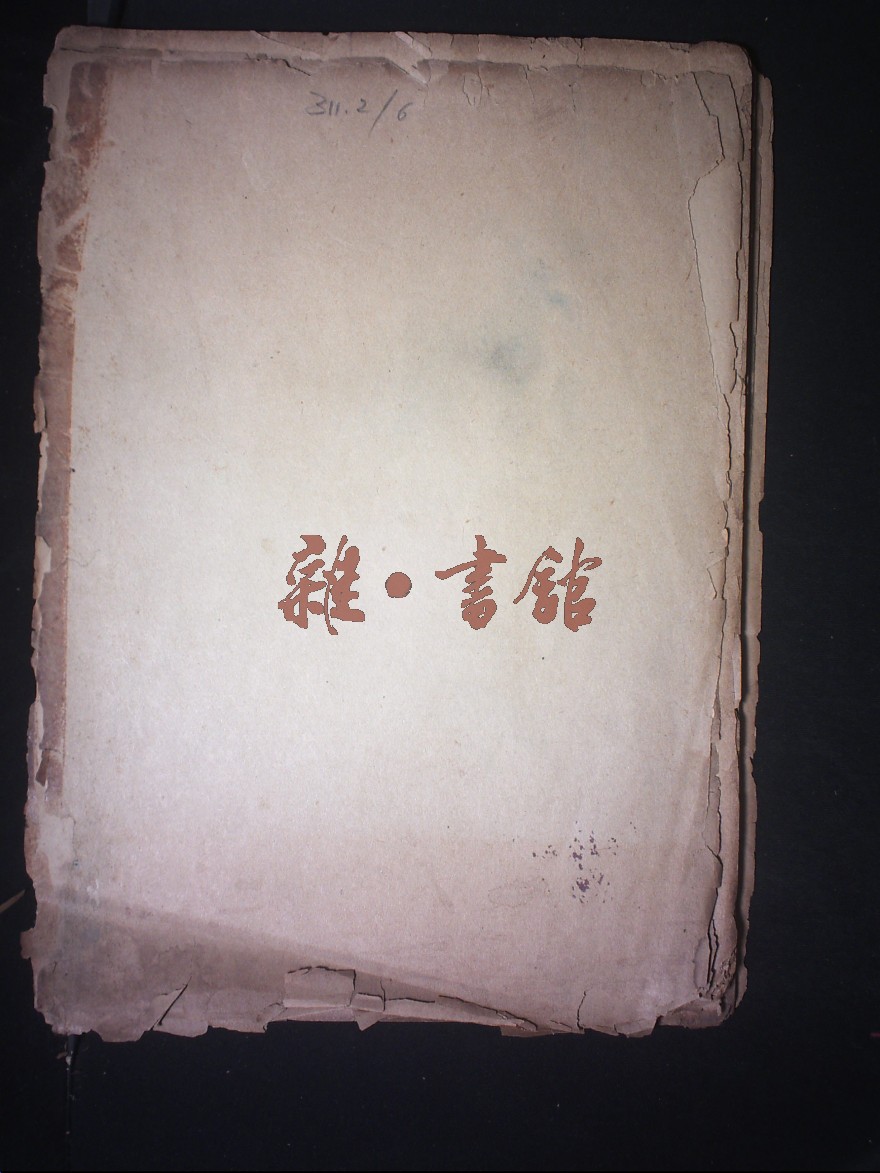 311.2/6
雜·書館